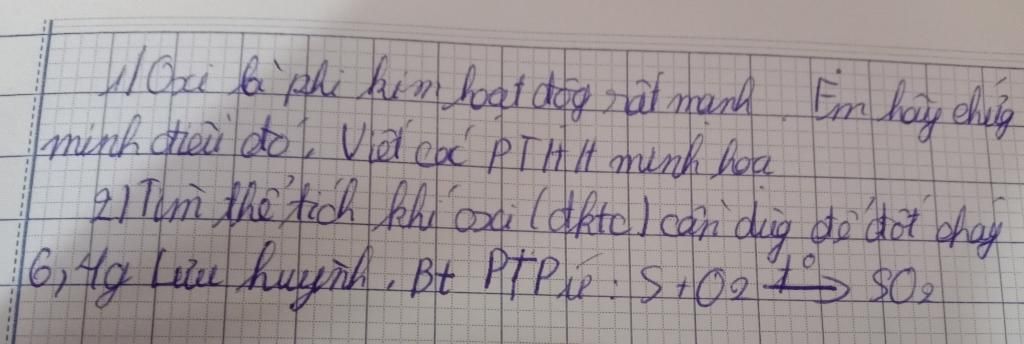 1) Oxi là phi kim hoạt độg rất mạnh. Em hãy chứg
minh điều đó. Viết các PTHH minh hoạ
2) Tìm thể tích khí oxi (đktc) cần dùg để đốt cháy
6,4g Lưu huỳnh. Bt PTPứ: S + O2 t° → SO2